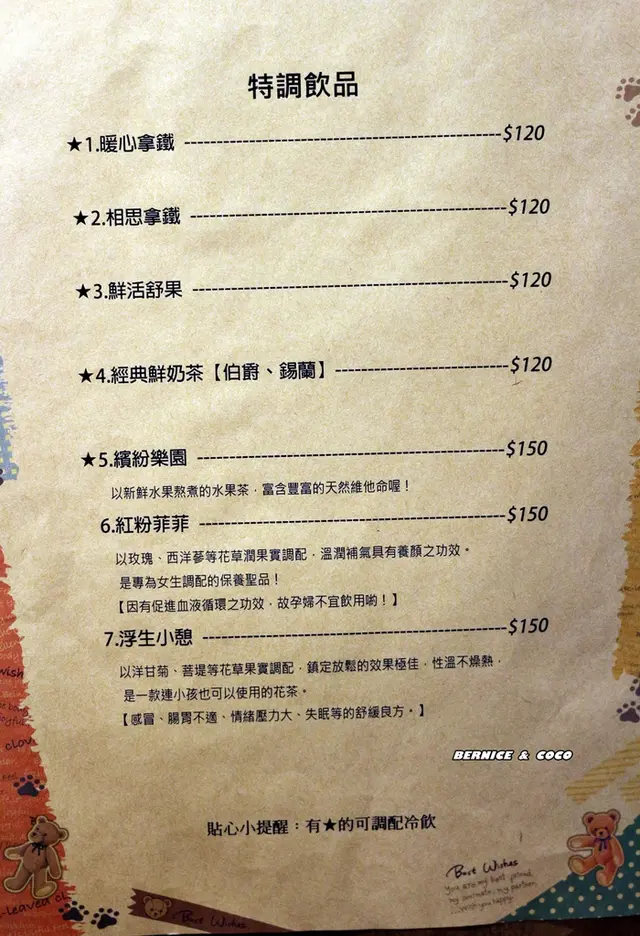 特調飲品
★1.暖心拿鐵 ---------- $120
★2.相思拿鐵 ---------- $120
★3.鮮活舒果 ---------- $120
★4.經典鮮奶茶【伯爵、錫蘭】 ---------- $120
★5.繽紛樂園 ---------- $150
以新鮮水果熬煮的水果茶，富含豐富的天然維他命喔！
6.紅粉菲菲 ---------- $150
以玫瑰、西洋蔘等花草潤果實調配，溫潤補氣具有養顏之功效。
是專為女生調配的保養聖品！
【因有促進血液循環之功效，故孕婦不宜飲用喲！】
7.浮生小憩 ---------- $150
以洋甘菊、菩堤等花草果實調配，鎮定放鬆的效果極佳，性溫不燥熱，
是一款連小孩也可以使用的花茶。
【感冒、腸胃不適、情緒壓力大、失眠等的舒緩良方。】
BERNICE & COCO
貼心小提醒：有★的可調配冷飲
Best Wishes
You are my best friend,
my animate, my partner,
Best Wishes